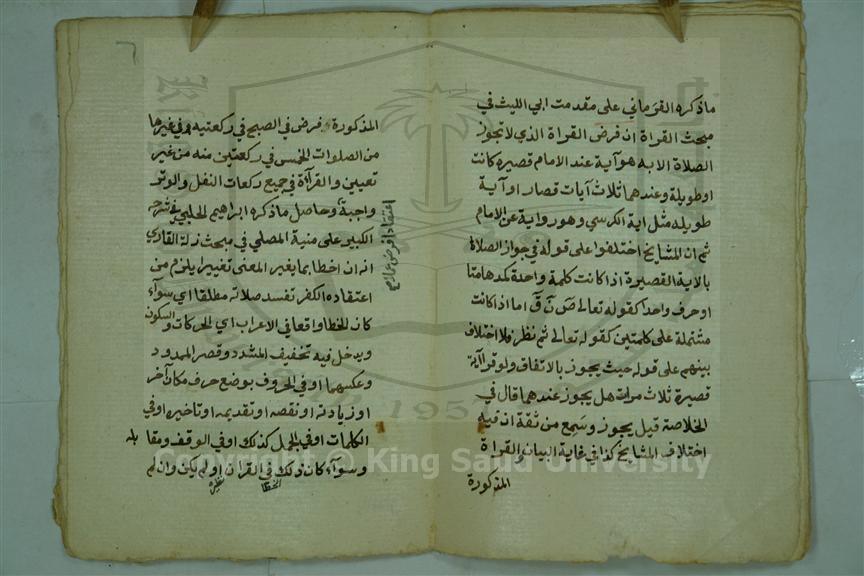 ما ذكره القرماني على مقدمت ابي الليث في
مبحث القراة ان فرض القراة الذي لا تجوز
الصلاة الا به هو آية عند الامام قصيرة كانت
او طويلة وعندهما ثلاث آيات قصار او آية
طويله مثل اية الكرسي وهو رواية عن الامام
ثم ان المشايخ اختلفوا على قوله في جواز الصلاة
بالاية القصيرة اذا كانت كلمة واحدة كمدهامتا
او حرف واحد كقوله تعالى ص ن ق اما اذا كانت
مشتملة على كلمتين كقوله تعالى ثم نظر فلا اختلاف
بينهم على قوله حيث يجوز بالاتفاق ولو قرا آية
قصيرة ثلاث مرات هل يجوز عندهما قال في
الخلاصة قيل يجوز وسمع من ثقة ان فيه
اختلاف المشايخ كذا في غاية البيان والقراة
المذكورة
٦
المذكورة فرض في الصبح في ركعتيه وفي غيرها
من الصلوات الخمس في ركعتين منه من غير
تعيين والقراءة في جميع ركعات النفل والوتر
واجبة وحاصل ما ذكره ابراهيم الحلبي في شرح
الكبير على منية المصلي في مبحث زلة القاري
انه ان اخطا بما يغير المعنى تغييرا يلزم من
اعتقاده الكفر تفسد صلاته مطلقا اي سوآء
كان الخطا واقعا في الاعراب اي الحركات والسكون
ويدخل فيه تخفيف المشدد وقصر الممدود
وعكسهما او في الحروف بوضع حرف مكان آخر
او زيادته او نقصه او تقديمه او تاخيره او في
الكلمات او في الجمل كذلك او في الوقف ومقابله
وسوآء كان ذلك في القران او لم يكن وان لم
الخطا نظيره
Copyright © King Saud University
1957